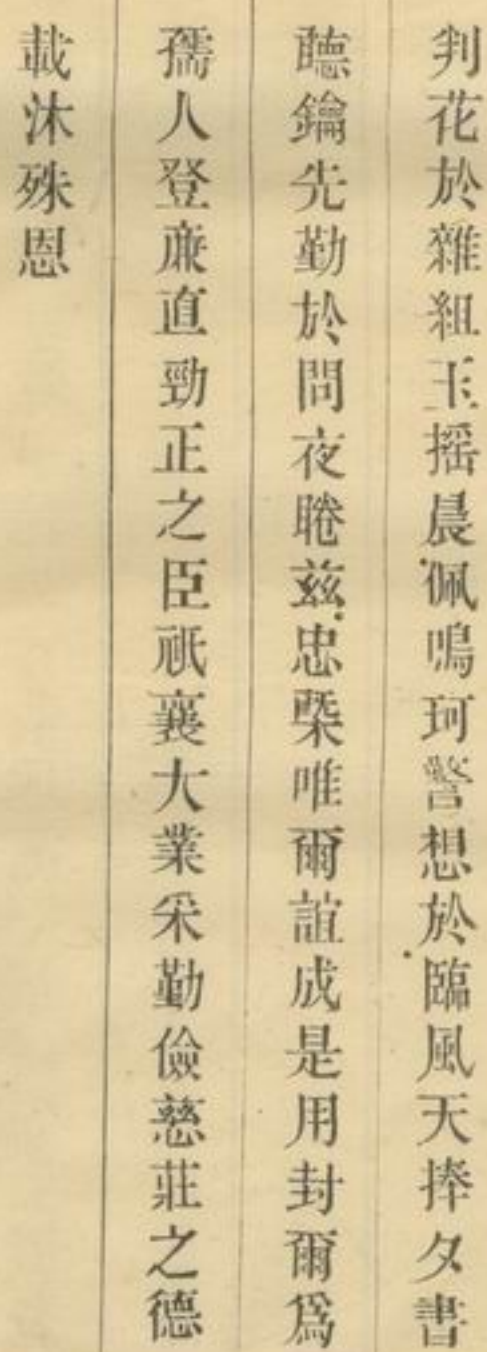 判花於雜組玉搖晨佩鳴珂警想於臨風天捧夂書
聽鑰先勤於問夜睠茲忠槩唯爾誼成是用封爾爲
孺人登亷直勁正之臣祇襄大業采勤儉慈莊之德
載沐殊恩